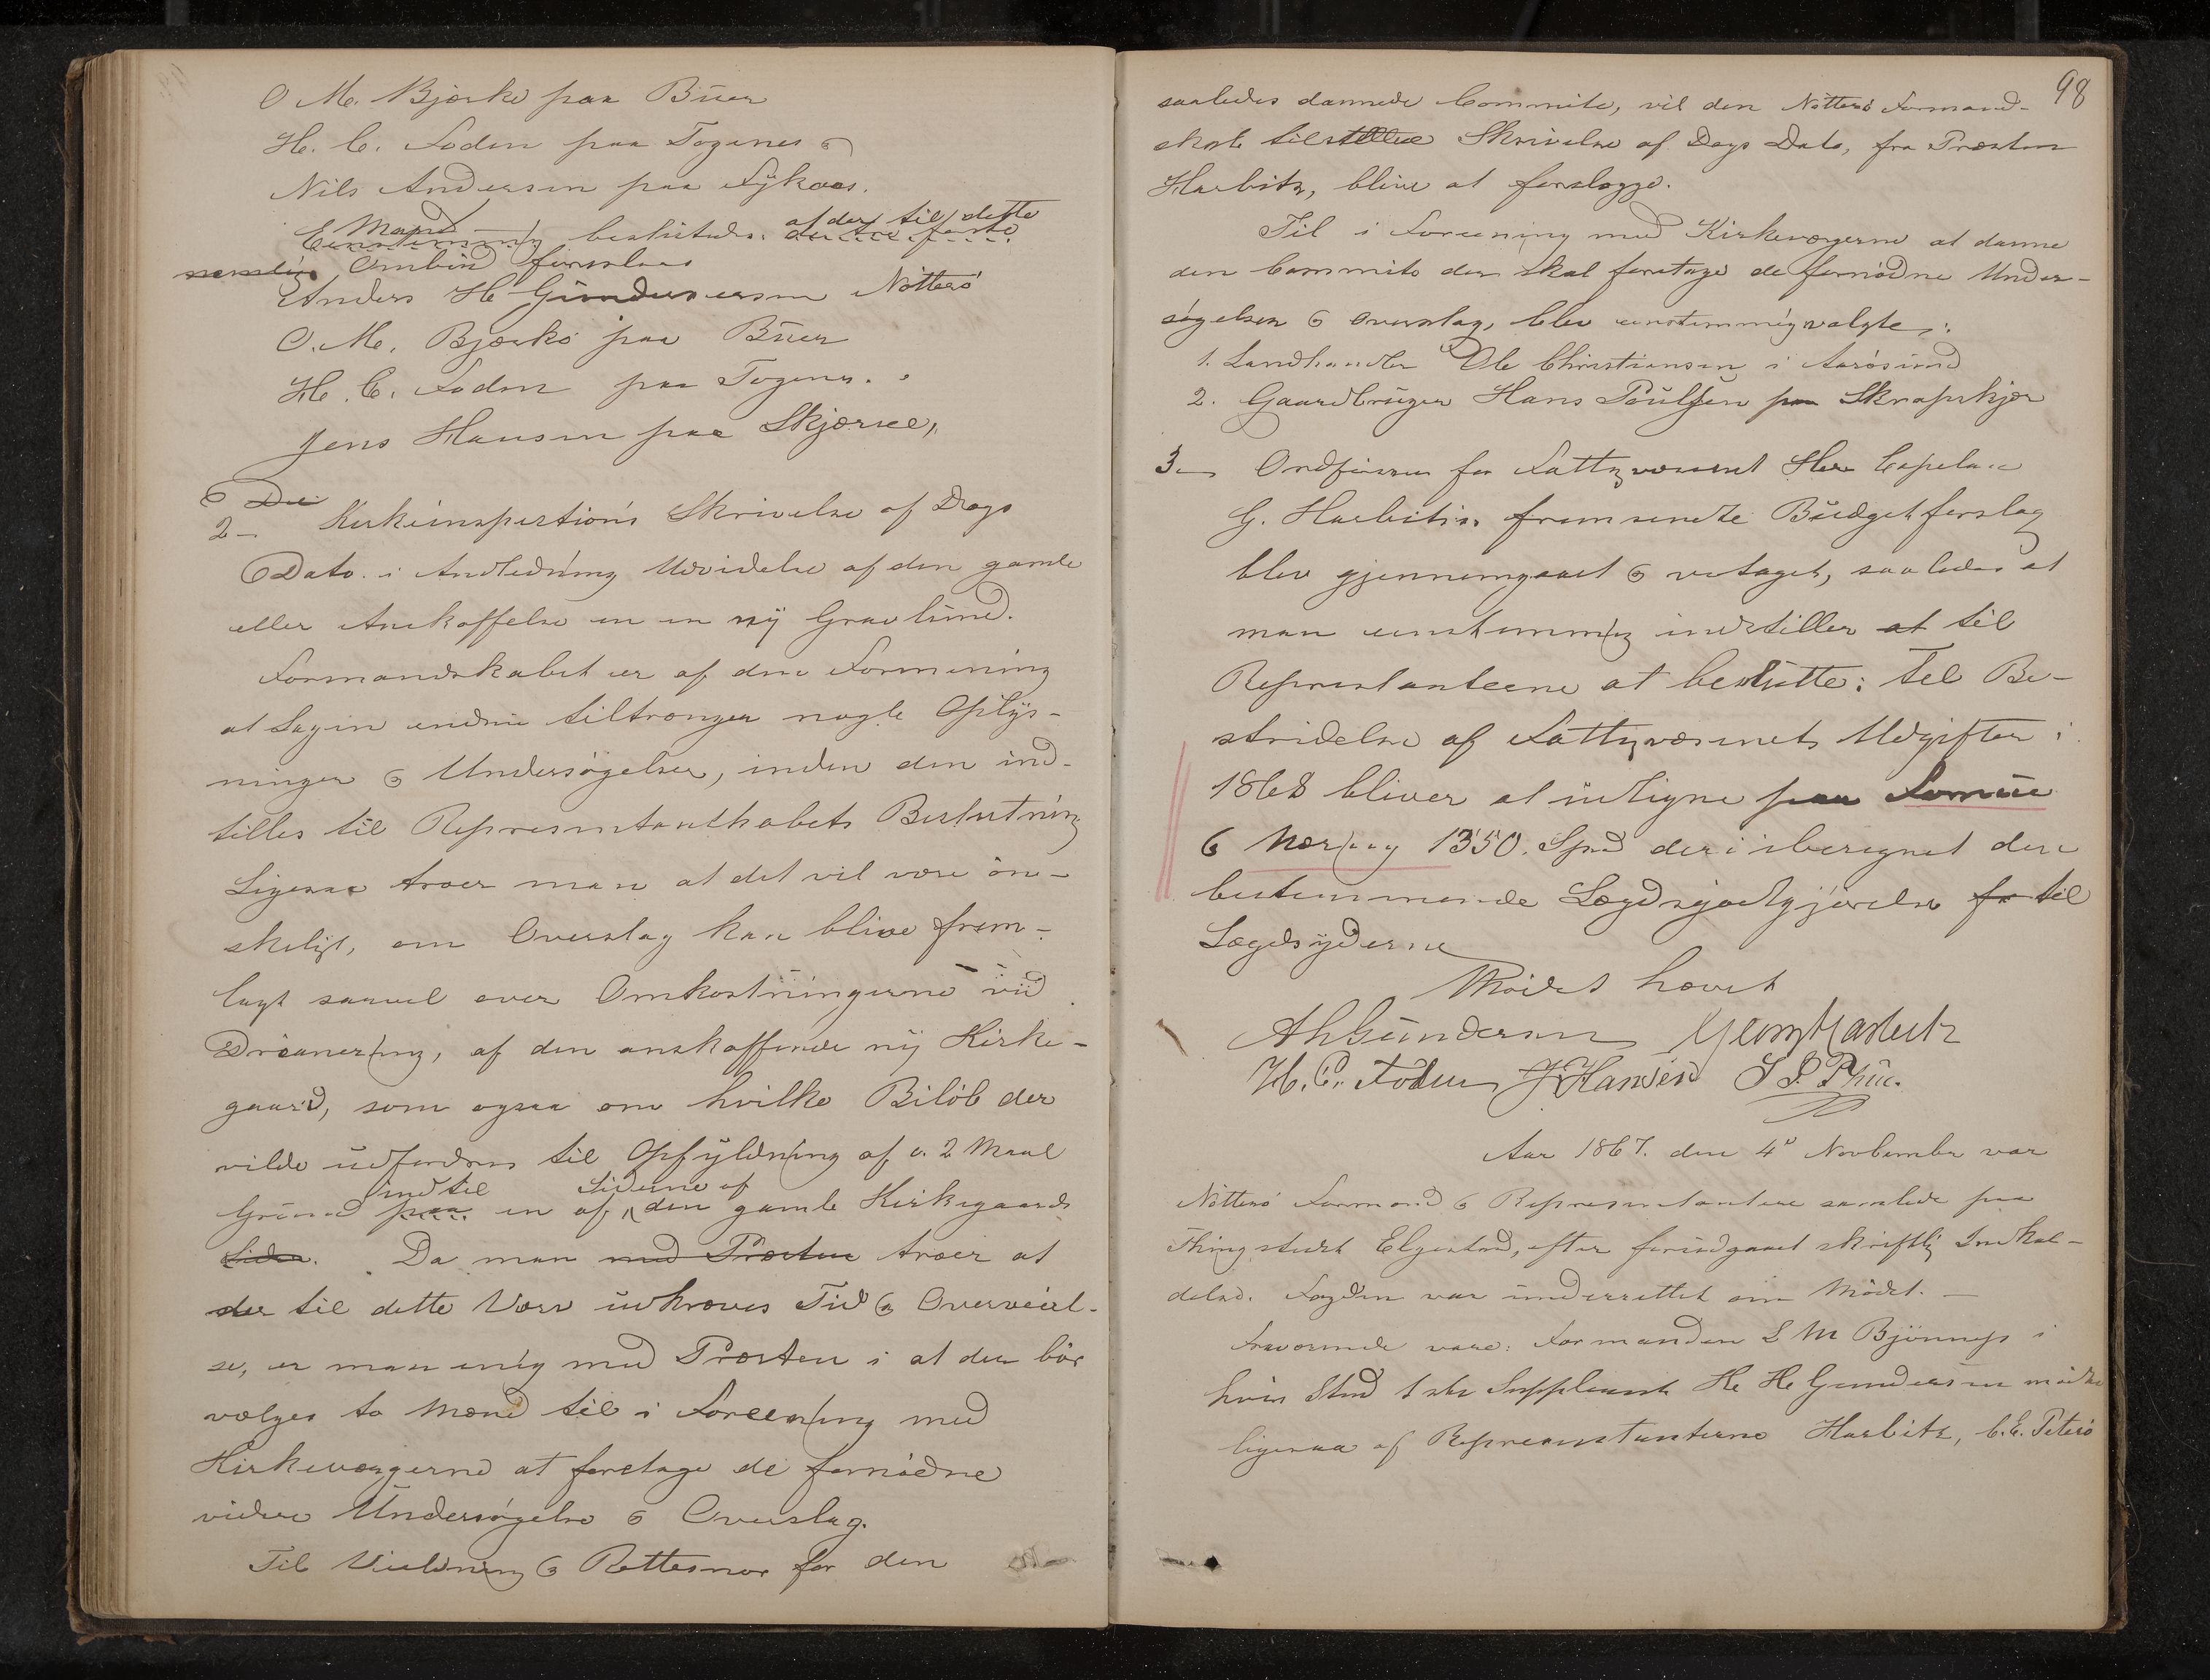 O M. Bjerkø paa Buer
H. C. Foden paa Togenes
Nils Andersen paa Fykaas.
Mand af der til dette
Eenstemmig besluttedes. de tre første
nemlig Ombud foreslaaes
Anders H Gundersen Nøtterø
O. M. Bjerkø paa Buer
H. C. Foden paa Togenes.
Jens Hansen paa Skjerve,
2 Kirkeinspektions Skrivelse af Dags
Dato. i Andledning Udvidelse af den gamle
eller Anskaffelse en en ny Gravlund.
Formandskabet er af den Formening
at Sagen endnu tiltrænger nogle Oplys-
ninger & Undersøgelser, inden den ind-
stilles til Representantskabets Beslutning
Ligesaa troer man at det vil være øn-
skeligt, om Overslag kan blive frem-
lagt saavel over Omkostningerne ved
Dræanering, af den anskaffende ny Kirke-
gaard, som ogsaa om hvilke Biløb der
vilde udfordres til Opfyldning af c. 2 Maal
indtil Siderne af
Grund paa en af den gamle Kirkegaards
Sider. Da man med Præsten troer at
der til dette Værv udkræves Tid & Overveiel-
se, er man enig med Præsten i at der bør
vælges to Mænd til i Foreening med
Kirkeværgerne at foretage de fornødne
videre Undersøgelse & Overslag.
Til Veiledning & Rettesnor for den
98
saaledes dannede Committe, vil den Nøtterø Formand-
skab tilstillede Skrivelse af Dags Dato, fra Præsten
Harbitz, blive at forelægge.
Til i Foreening med Kirkeværgerne at danne
den Committe der skal foretage de fornødne Under-
søgelser & Overslag, blev eenstemmig valgte:
1. Landhandler Ole Christiansen i Aarøsund
2. Gaardbruger Hans Poulsen paa Skrapskjær
3 Ordføreren for Fattigvæsenet Herr Capelan
G. Harbitz's fremsendte Budgetforslag
blev gjennemgaaet & vetaget, saaledes at
man eenstemmig indstiller at til
Represtanteene at beslutte: Til Be-
stridelse af Fattigvæsenets Udgifter i
1868 bliver at udligne paa Formue
& Næring 1350. Spd deri iberegnet den
bestemmende Lægdsgodtgjørelse for til
Lægdsyderne
Mødet hævet
AHGundersen Georg Harbitz
H. C. Foden J Hansen
Aar 1867. den 4de Novbember var
Nøtterø Formænd & Representantere samlede paa
Thingstedet Elgestad, efter forudgaaet skriftlig Indkal-
delse. Fogden var underrettet om Mødet. —
Fraværende vare: Formanden S M Bjønnes i
hvis Sted 1ste Suppleant H. H Gundersen mødte
ligesaa af Representanterne Harbitz, C. E. Petersø